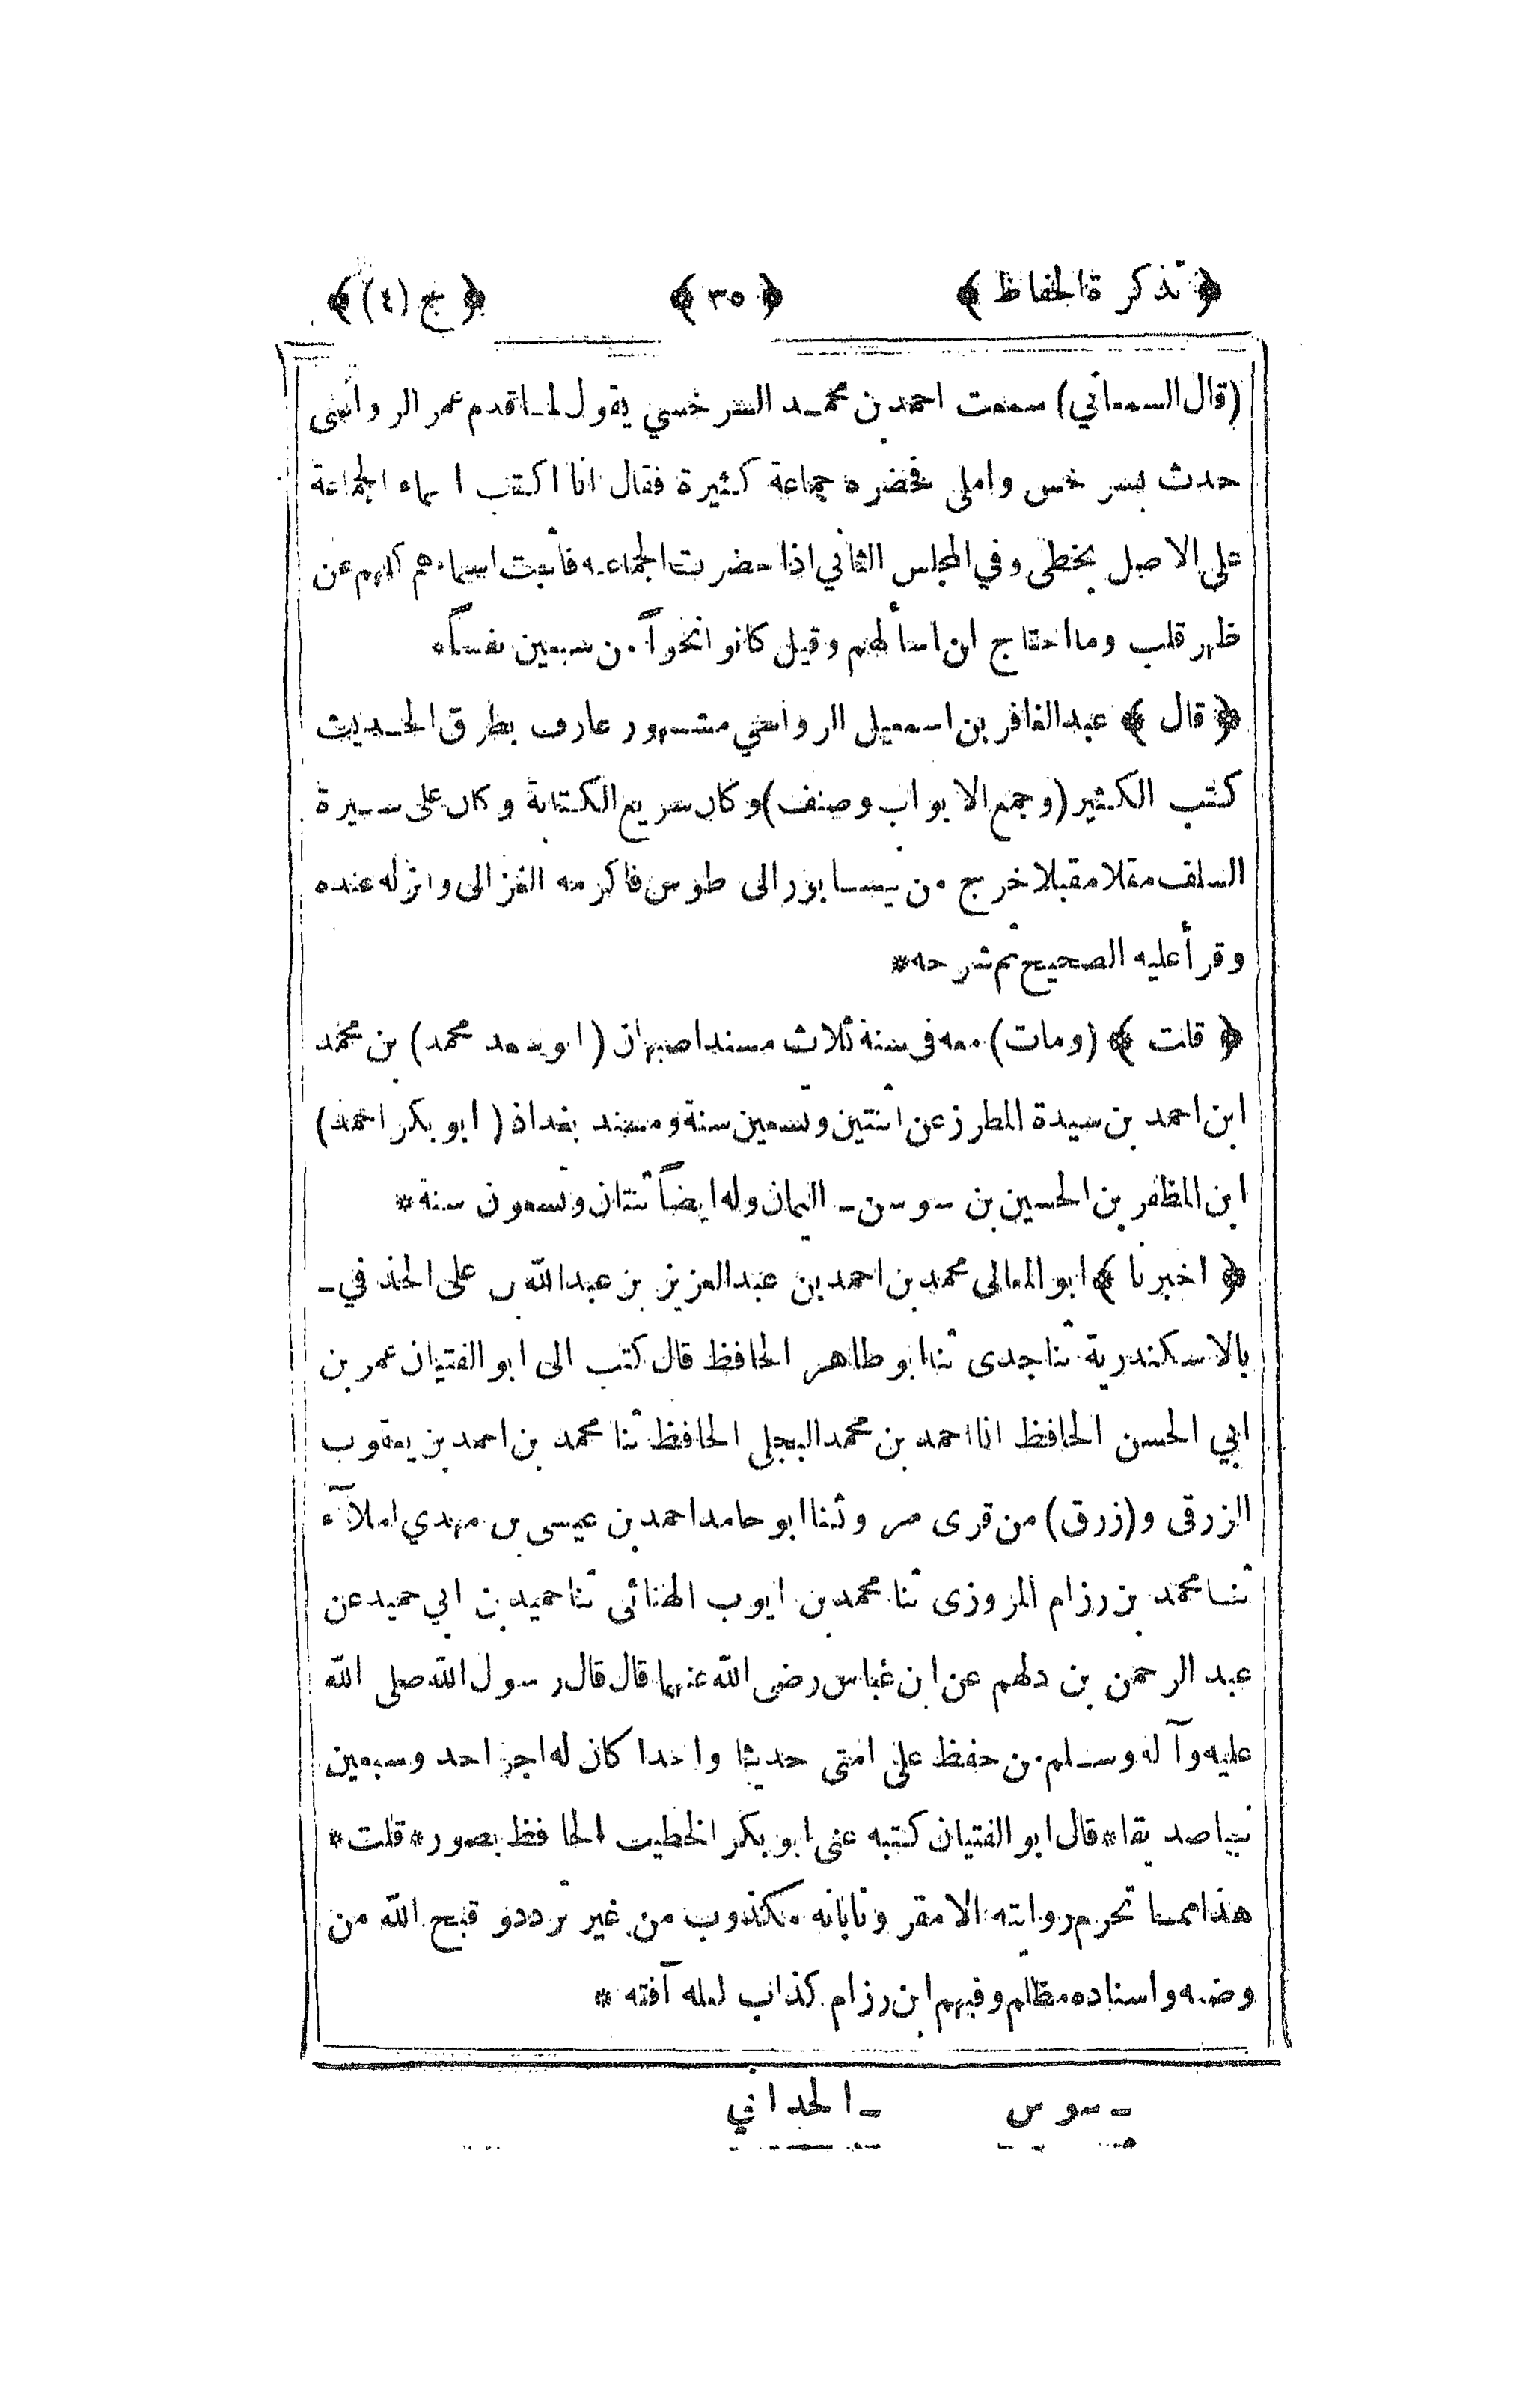 ﴿ تذكرة الحفاظ ﴾ ﴿ ٣٥ ﴾ ﴿ ج (٤) ﴾
(قال السمعاني) سمعت احمد بن محمد السرخسي يقول لما قدم عمر الرواسى
حدث بسرخس واملى فحضره جماعة كثيرة فقال انا اكتب اسماء الجماعة
على الاصل بخطى وفي المجلس الثاني اذا حضرت الجماعه فأثبت اسماءهم كلهم عن
ظهر قلب وما احتاج ان اسألهم وقيل كانوا نحواً من سبعين نفساً*
﴿ قال ﴾ عبد الغافر بن اسمعيل الرواسي مشهور عارف بطرق الحديث
كتب الكثير (وجمع الابواب وصنف) وكان سريع الكتابة وكان على سيرة
السلف مقلا مقبلا خرج من نيسابور الى طوس فاكرمه الغزالى وانزله عنده
وقرأ عليه الصحيح ثم شرحه*
﴿ قلت ﴾ (ومات) معه فى سنة ثلاث مسند اصبهان (ابو سعد محمد) بن محمد
ابن احمد بن سيدة المطرز عن اثنتين وتسعين سنة ومسند بغداد (ابو بكر احمد)
ابن المظفر بن الحسين بن سوسن ـ التمار وله ايضاً ثنتان وتسعون سنة*
﴿ اخبرنا ﴾ ابو المعالى محمد بن احمد بن عبد العزيز بن عبد الله بن على الحذفي ـ
بالاسكندرية ثنا جدى ثنا ابو طاهر الحافظ قال كتب الى ابو الفتيان عمر بن
ابي الحسن الحافظ انا احمد بن محمد البجلى الحافظ ثنا محمد بن احمد بن يعقوب
الزرقى و(زرق) من قرى مرو ثنا ابو حامد احمد بن عيسى بن مهدي املاآء
ثنا محمد بن رزام المروزى ثنا محمد بن ايوب الهنائى ثنا حميد بن ابي حميد عن
عبد الرحمن بن دلهم عن ابن عباس رضى الله عنهما قال قال رسول الله صلى الله
عليه وآله وسلم من حفظ على امتى حديثا واحدا كان له اجر احد وسبعين
نبيا صديقا* قال ابو الفتيان كتبه عنى ابو بكر الخطيب الحافظ بصور* قلت*
هذا مما تحرم روايته الا مقرونا بانه مكذوب من غير تردد وقبح الله من
وضعه واسناده مظلم وفيهم ابن رزام كذاب لعله آفته *
ـ سوس ـ الحداني